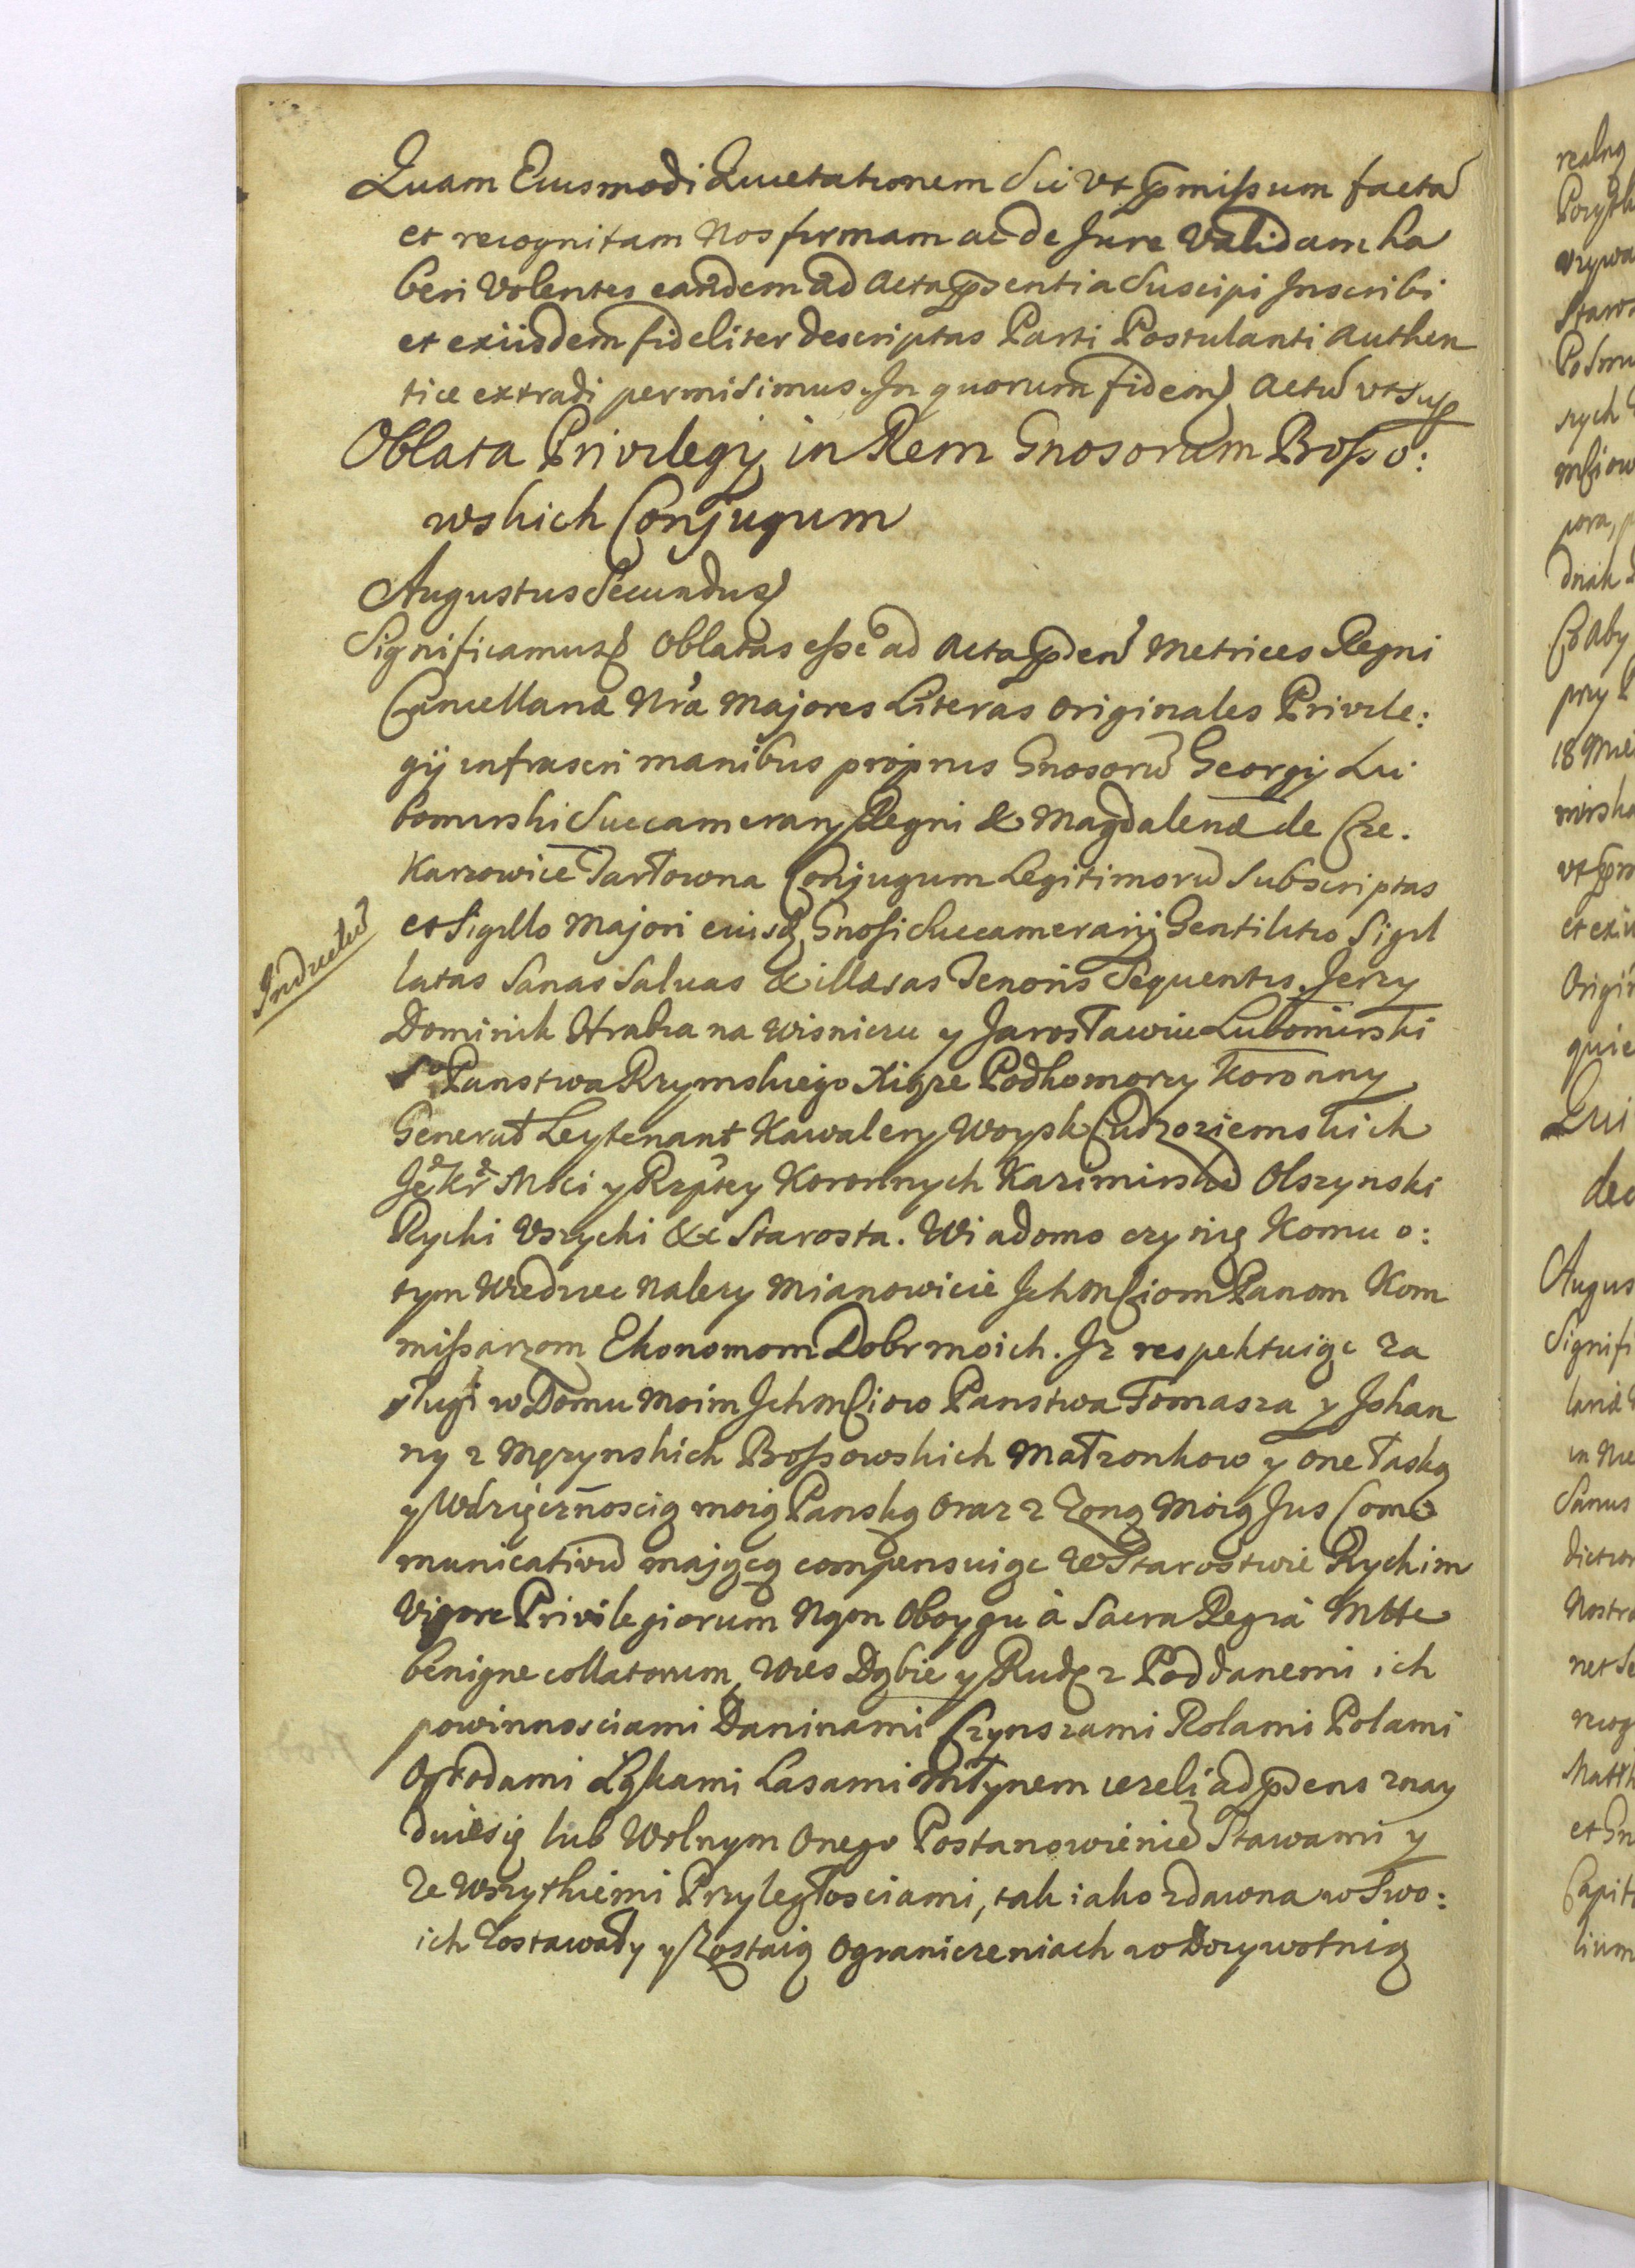 Quam Eiusmodi Quietationem Sic vt pmissum facta
et recognitam Nos firmam ac de Jure Validam ha
beri Volentes eandem ad Acta psentia Suscipi Inscribi
et exiisdem fideliter descriptas Parti Postulanti Authen
tice extradi permisimus. In quorum fidem Actu vt Sup
Oblata Privilegij in Rem Gnosorum Bosso:
wskich Conjugum
Augustus Secundus
Significamus Oblatas esse ad Acta pden Metrices Regni
Cancellariæ Nræ Majores Literas Originales Privile:
gij infrascri manibus proprijs Gnosoru Georgij Lu
bomirski Succamerarij Regni & Magdalenæ de Cze.
Karzowice Tarłowna Conjugum Legitimoru Subscriptas
et Sigillo Majori eiusq Gnosi Succamerarij Gentilitio Sigil
latas Sanas Saluas & illæsas Tenoris Sequentis. Jerzy
Inductu
Dominik Hrabia na Wisniczu y Jarosławiu Lubomirski
So Panstwa Rzymskiego Xiąze Podkomorzy Koronny
Generał Leytenant Kawalery Woysk Cudzoziemskich
Je Kr Mci y Rzptey Koronnych Kazimirski Olszynski
Rycki Uszycki &c Starosta. Wiadomo czynię Komu o:
tym Wiedziec Nalezy Mianowicie IchMściom Panom Kom
missarzom Ekonomom Dobr moich. Iz respektuiąc za
sługi w Domu Moim IchMściow Panstwa Tomasza y Johan
ny z Męzynskich Bossowskich Małzonkow y one Łaską
y Wdzięcznoscią moią Panską Oraz z Zoną Moią Jus Com
municativu maiącą compensuiąc w Starostwie Ryckim
Vigore Privilegiorum Nąm Oboygu à Sacra Regia Mtte
benigne collatorum, Wies Dąbie y Rudę z Poddanemi ich
powinnosciami Daninami Czynszami Rolami Polami
Ogrodami Łąkami Lasami Młynem iezeli ad pdens znay
duie się lub Wolnym Onego Postanowienie Stawami y
Ze Wszytkiemi Przyległosciami, tak iako zdawna w Swo:
ich Zostawały y Zostaią Ograniczeniach w Dozywotnią